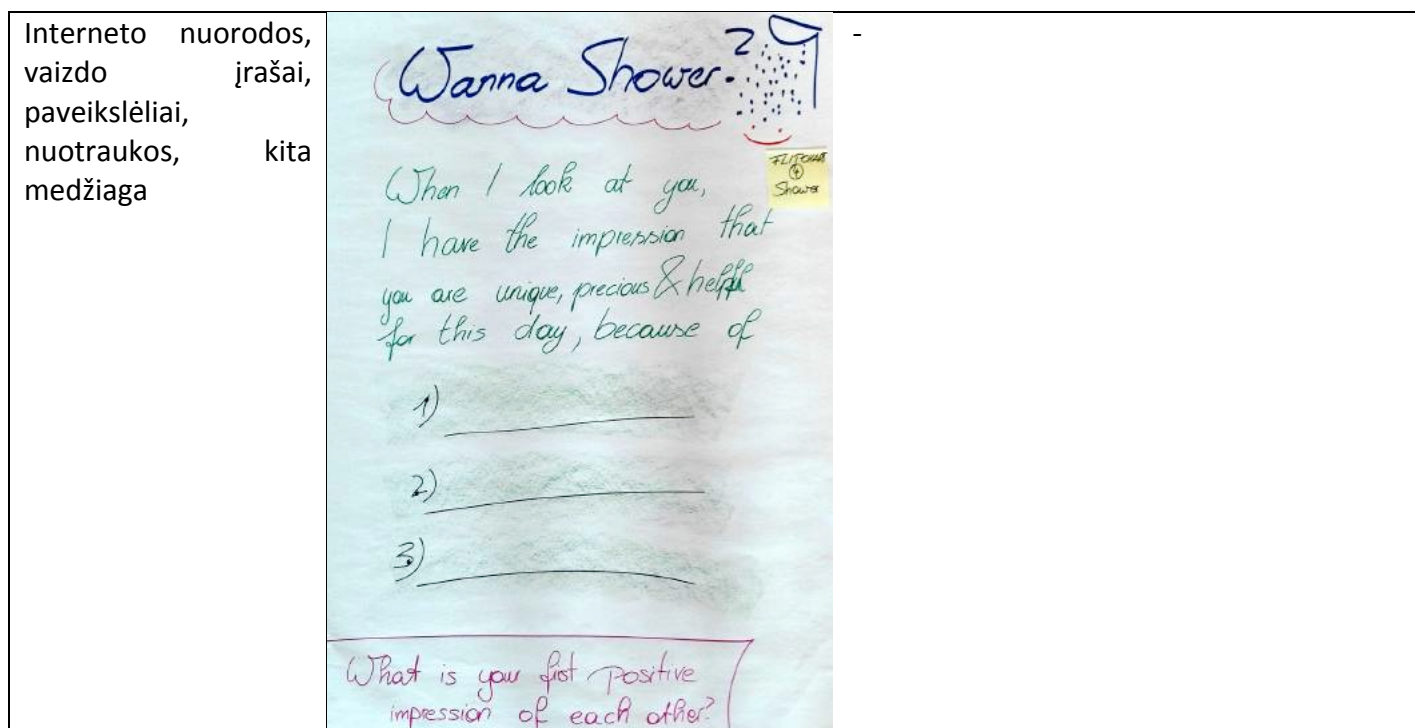 Interneto nuorodos,
vaizdo įrašai,
paveikslėliai,
nuotraukos, kita
medžiaga
-
Wanna Shower?
FLIPCHART
4
Shower
When I look at you,
I have the impression that
you are unique, precious & helpful
for this day, because of
1)
2)
3)
What is your first positive
impression of each other?